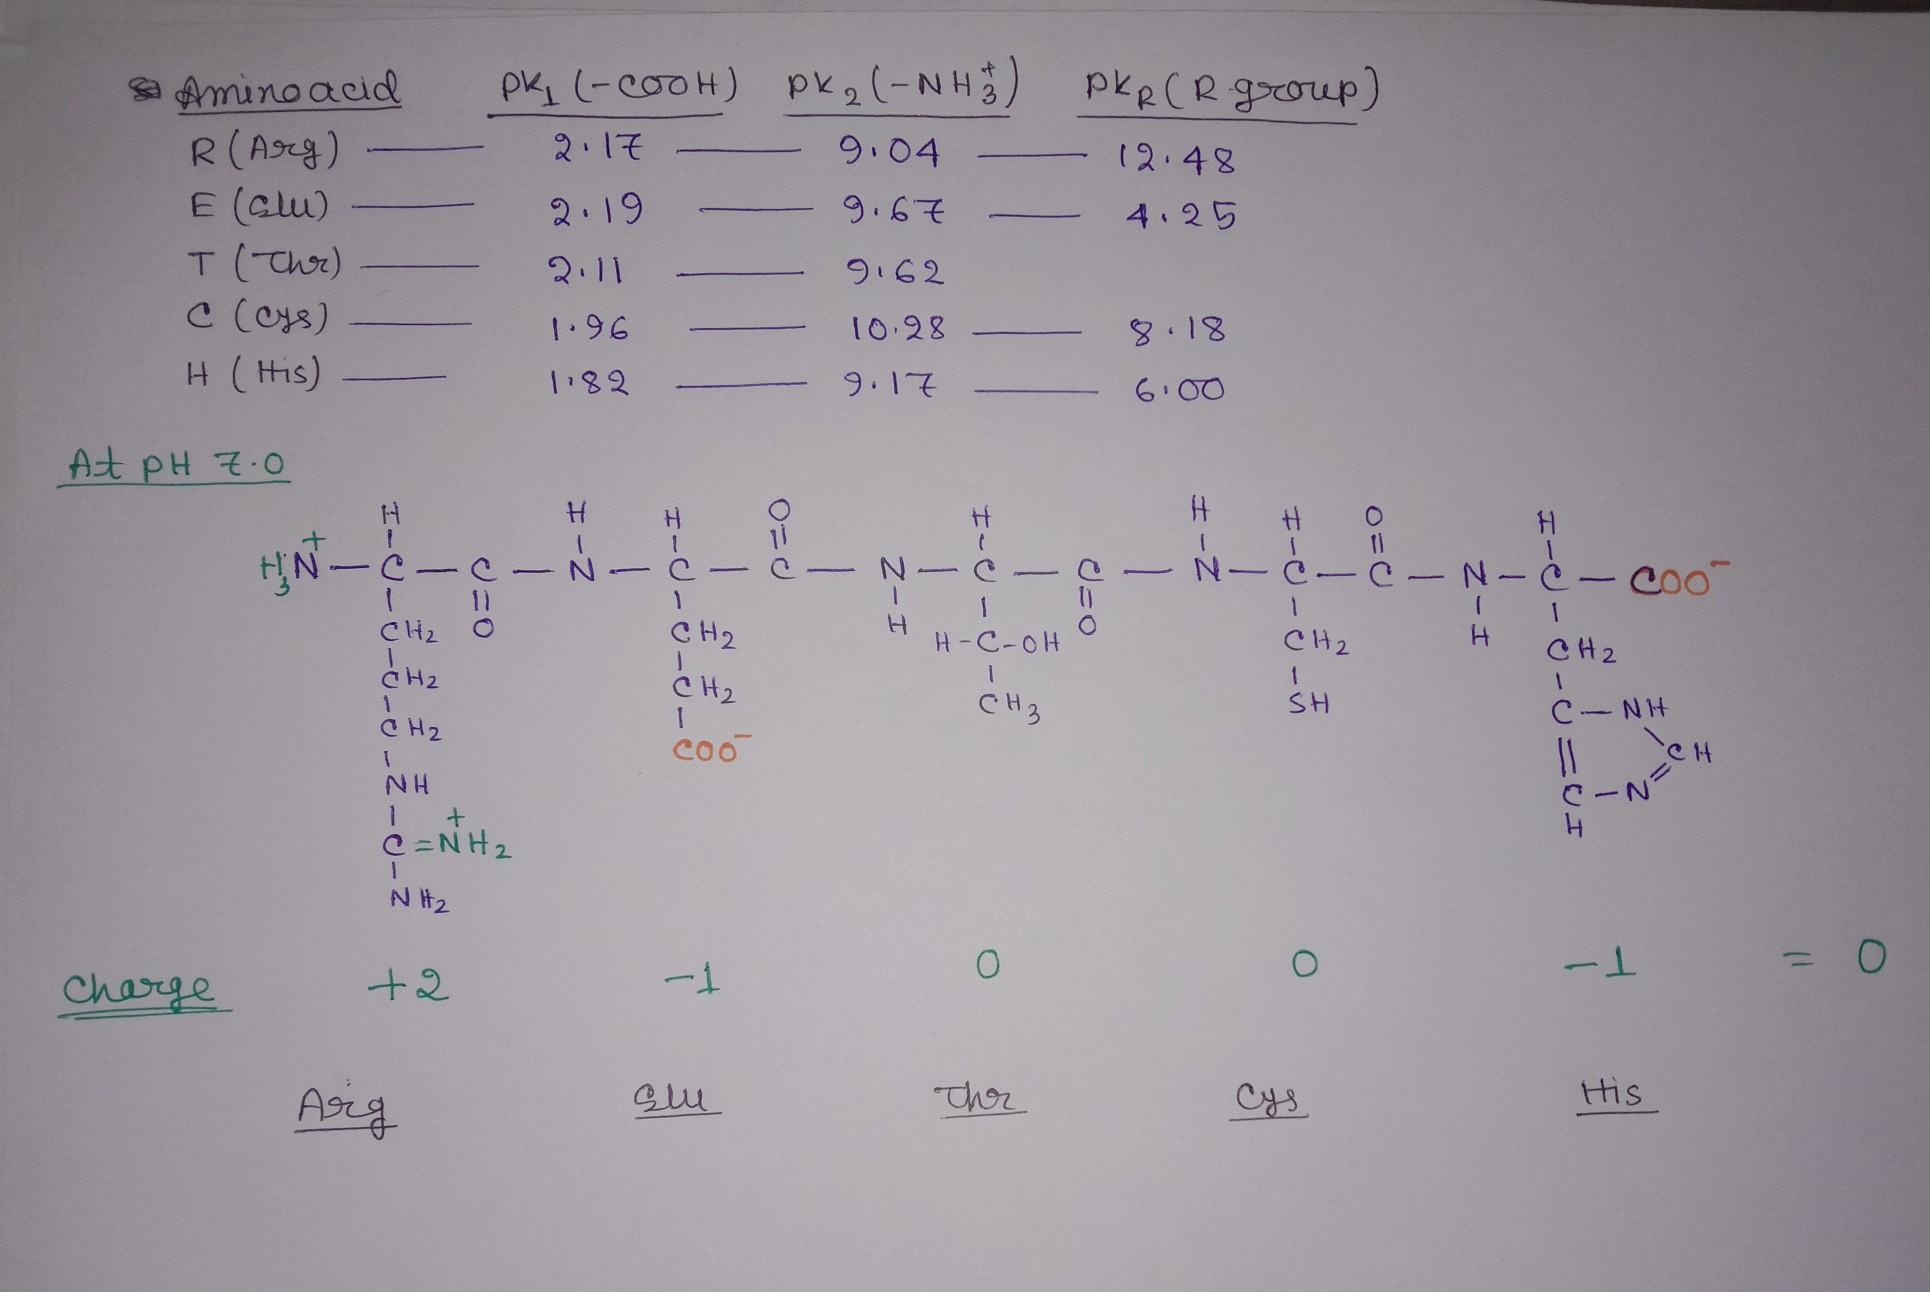 Aminoacid pK1 (-COOH) pK2 (-NH3+) pKR (R group)
R (Arg) — 2.17 — 9.04 — 12.48
E (Glu) — 2.19 — 9.67 — 4.25
T (Thr) — 2.11 — 9.62
C (Cys) — 1.96 — 10.28 — 8.18
H (His) — 1.82 — 9.17 — 6.00
At pH 7.0
H H O H H H O H
H3N+ — C — C — N — C — C — N — C — C — N — C — C — N — C — COO-
CH2 O CH2 H H-C-OH O CH2 H CH2
CH2 CH2 CH3 SH C — NH
CH2 COO- CH
NH C — N
C = N+H2 H
NH2
Charge +2 -1 0 0 -1 = 0
Arg Glu Thr Cys His